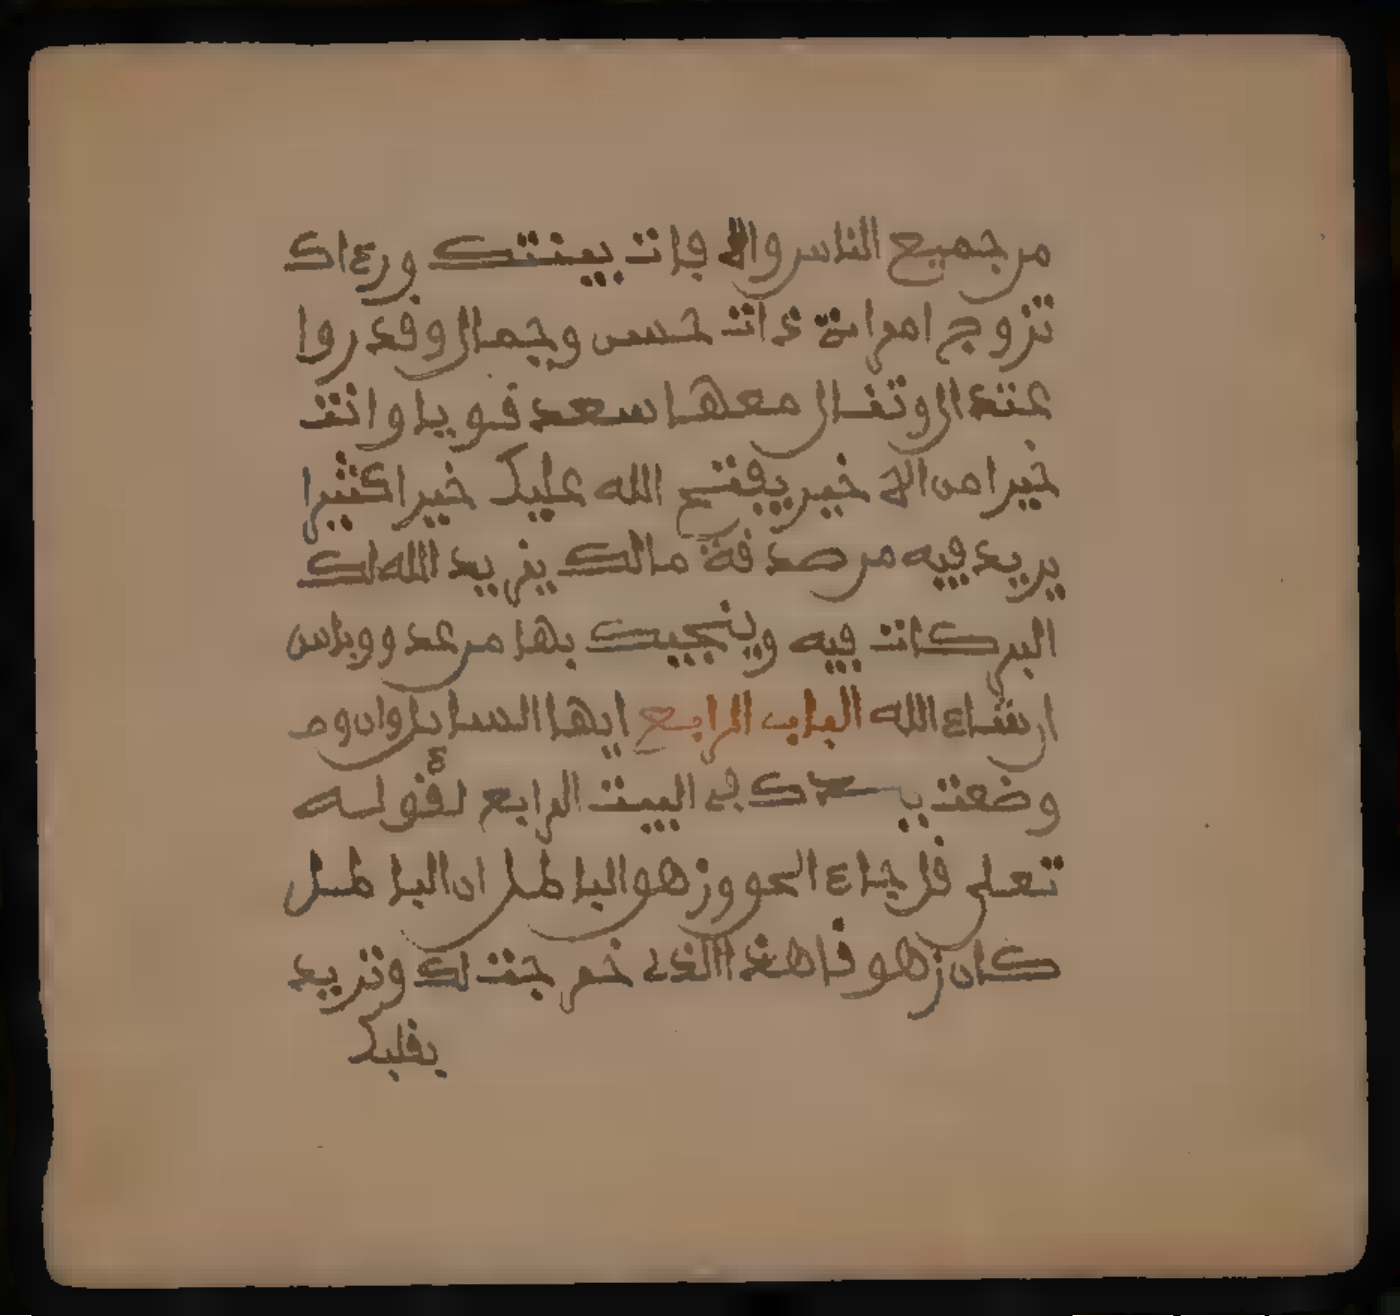 من جميع الناس والى فات بيتك وراءك
تزوج امراة ذات حسن وجمال وقد روا
عند ال وتفال معها سعد قويا وانت
خيرا من الى خير يفتح الله عليك خيرا كثيرا
يريد فيه من صدقة مالك يزيد الله لك
البركات فيه وينجيك بها من عدو وباس
ان شاء الله الباب الرابع ايها السايل وان و
وضعت يدك في البيت الرابع لقوله
تعلى قل جاء الحق وزهو الباطل ان الباطل
كان زهو فا هذا الذي خم جت لك وتريد
بقلبك